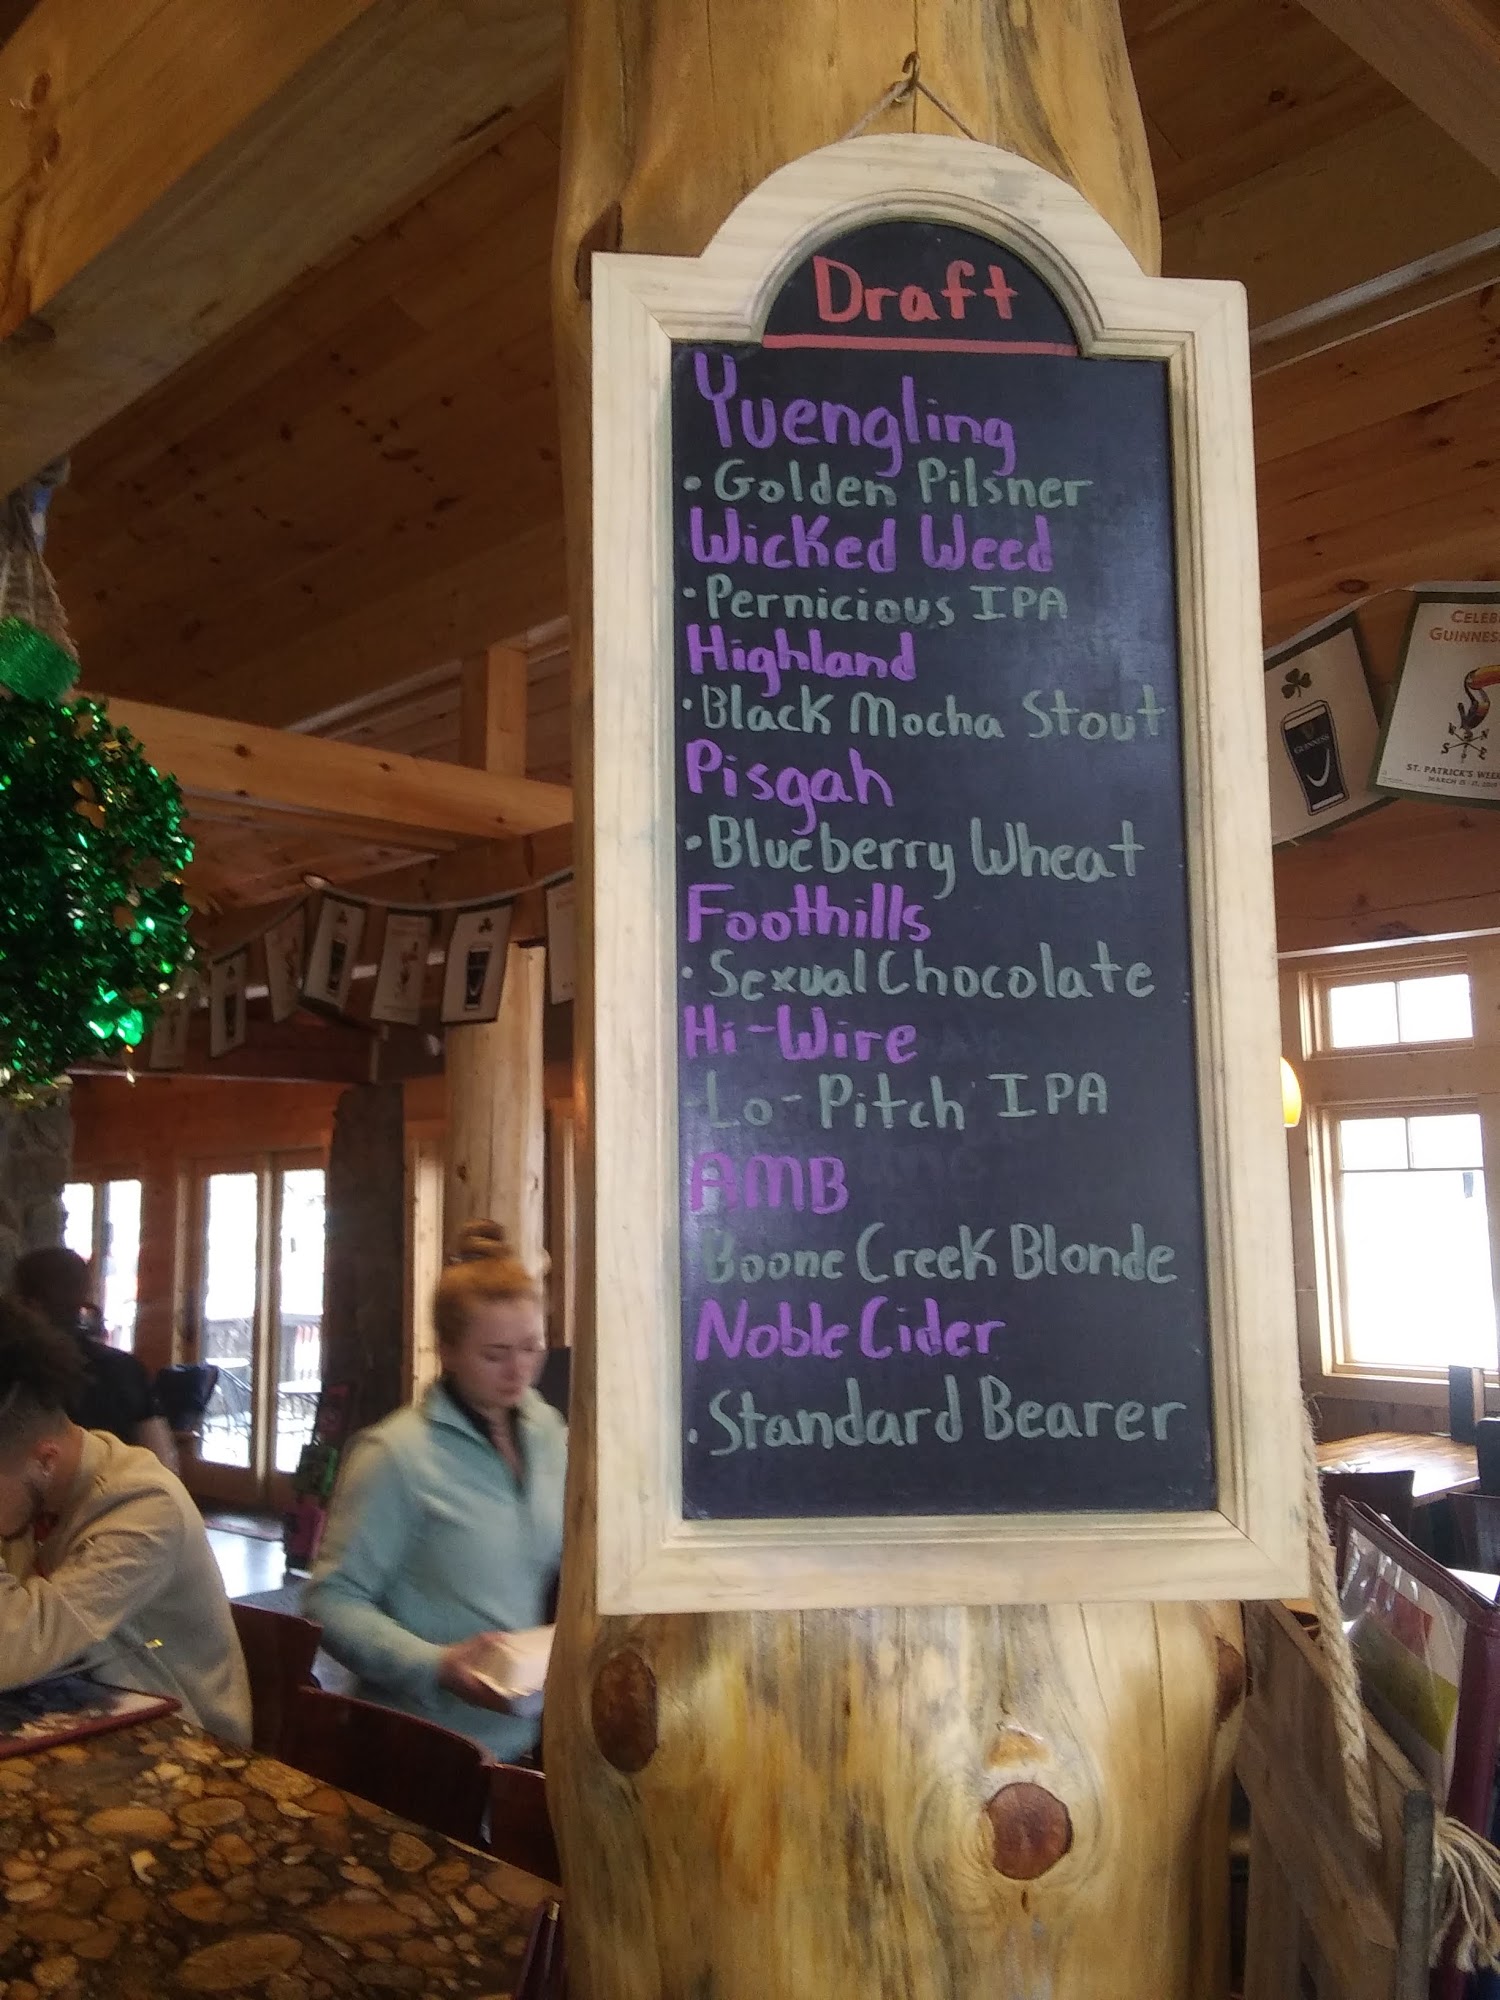 Draft
Yuengling
• Golden Pilsner
Wicked Weed
• Pernicious IPA
Highland
• Black Mocha Stout
Pisgah
• Blueberry Wheat
Foothills
• Sexual Chocolate
Hi-Wire
Lo-Pitch IPA
AMB
Boone Creek Blonde
Noble Cider
• Standard Bearer
GUINNESS
GUINNESS
ST. PATRICK'S